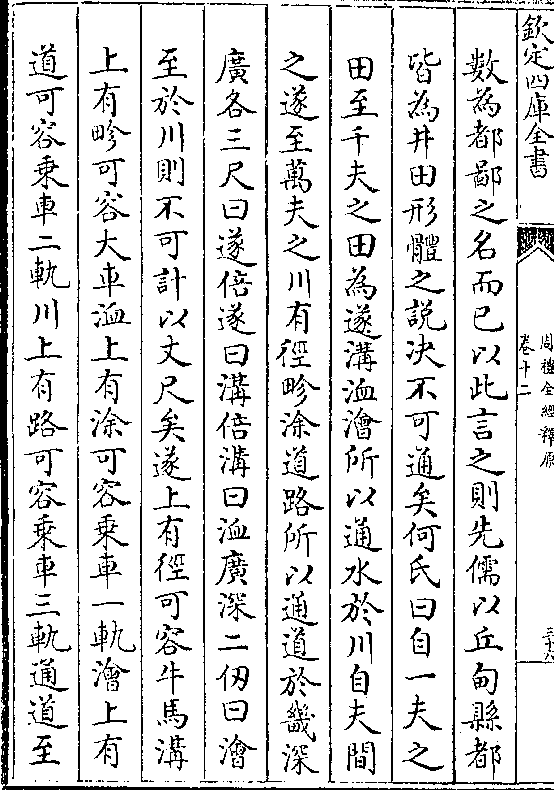 欽定四庫全書
周禮全經釋原
卷十二
三十八
數為都鄙之名而已以此言之則先儒以丘甸縣都
皆為井田形體之說决不可通矣何氏曰自一夫之
田至千夫之田為遂溝洫澮所以通水於川自夫間
之遂至萬夫之川有徑畛涂道路所以通道於畿深
廣各三尺曰遂倍遂曰溝倍溝曰洫廣深二仞曰澮
至於川則不可計以丈尺矣遂上有徑可容牛馬溝
上有畛可容大車洫上有涂可容乗車一軌澮上有
道可容乗車二軌川上有路可容乗車三軌通道至